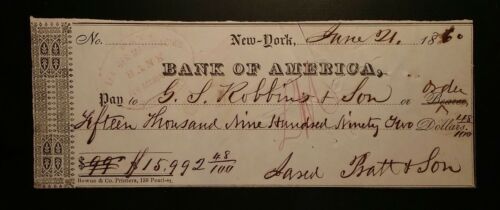 No. New-York, June 21. 18
BANK OF AMERICA,
Pay to G. S. Robbins & Son or order Bearer
Fifteen Thousand Nine Hundred Ninety Two 48/100 Dollars.
$99 $15.992 48/100 Jared Batt & Son
Bowne & Co. Printers, 150 Pearl-st.
BANK